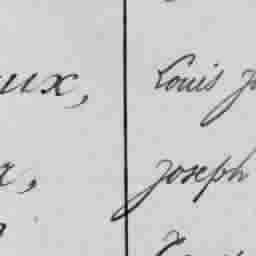 ux, Louis J
x, Joseph